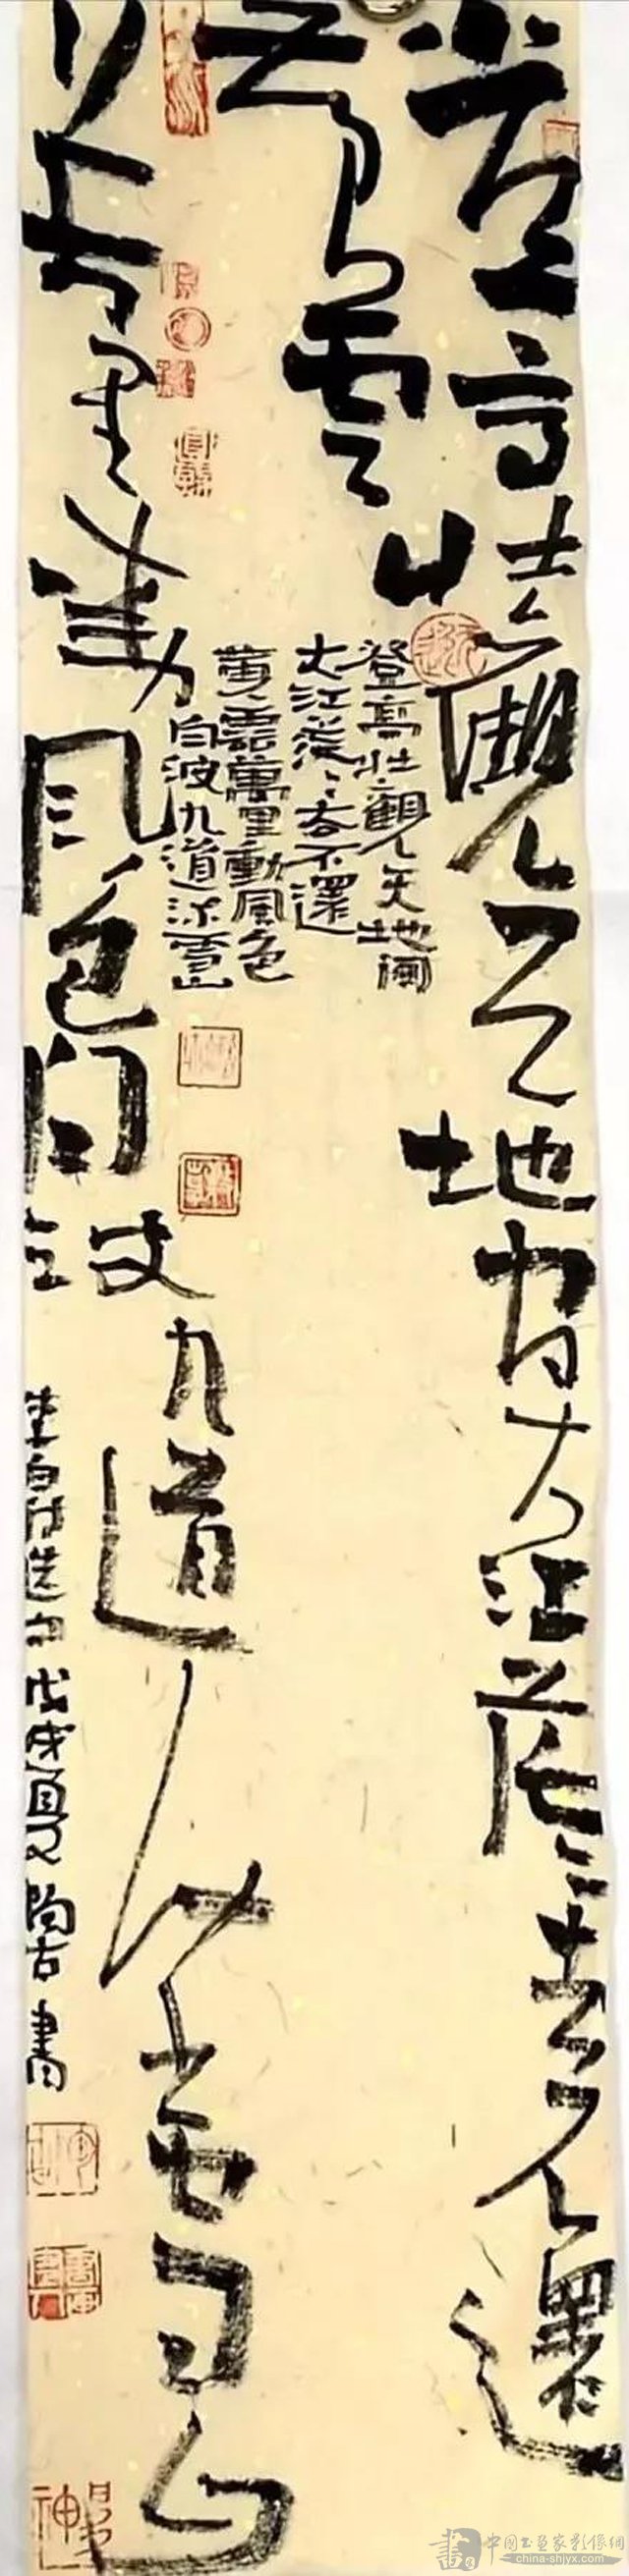 登高壯觀天地間大江茫〻去不還
黄雲
萬里動風色白波九道流雪山
登高壯觀天地間
大江茫〻去不還
黄雲萬里動風色
白波九道流雪山
李白詩选句戊戌夏
書
中国书画家影像网
china-shjyx.com